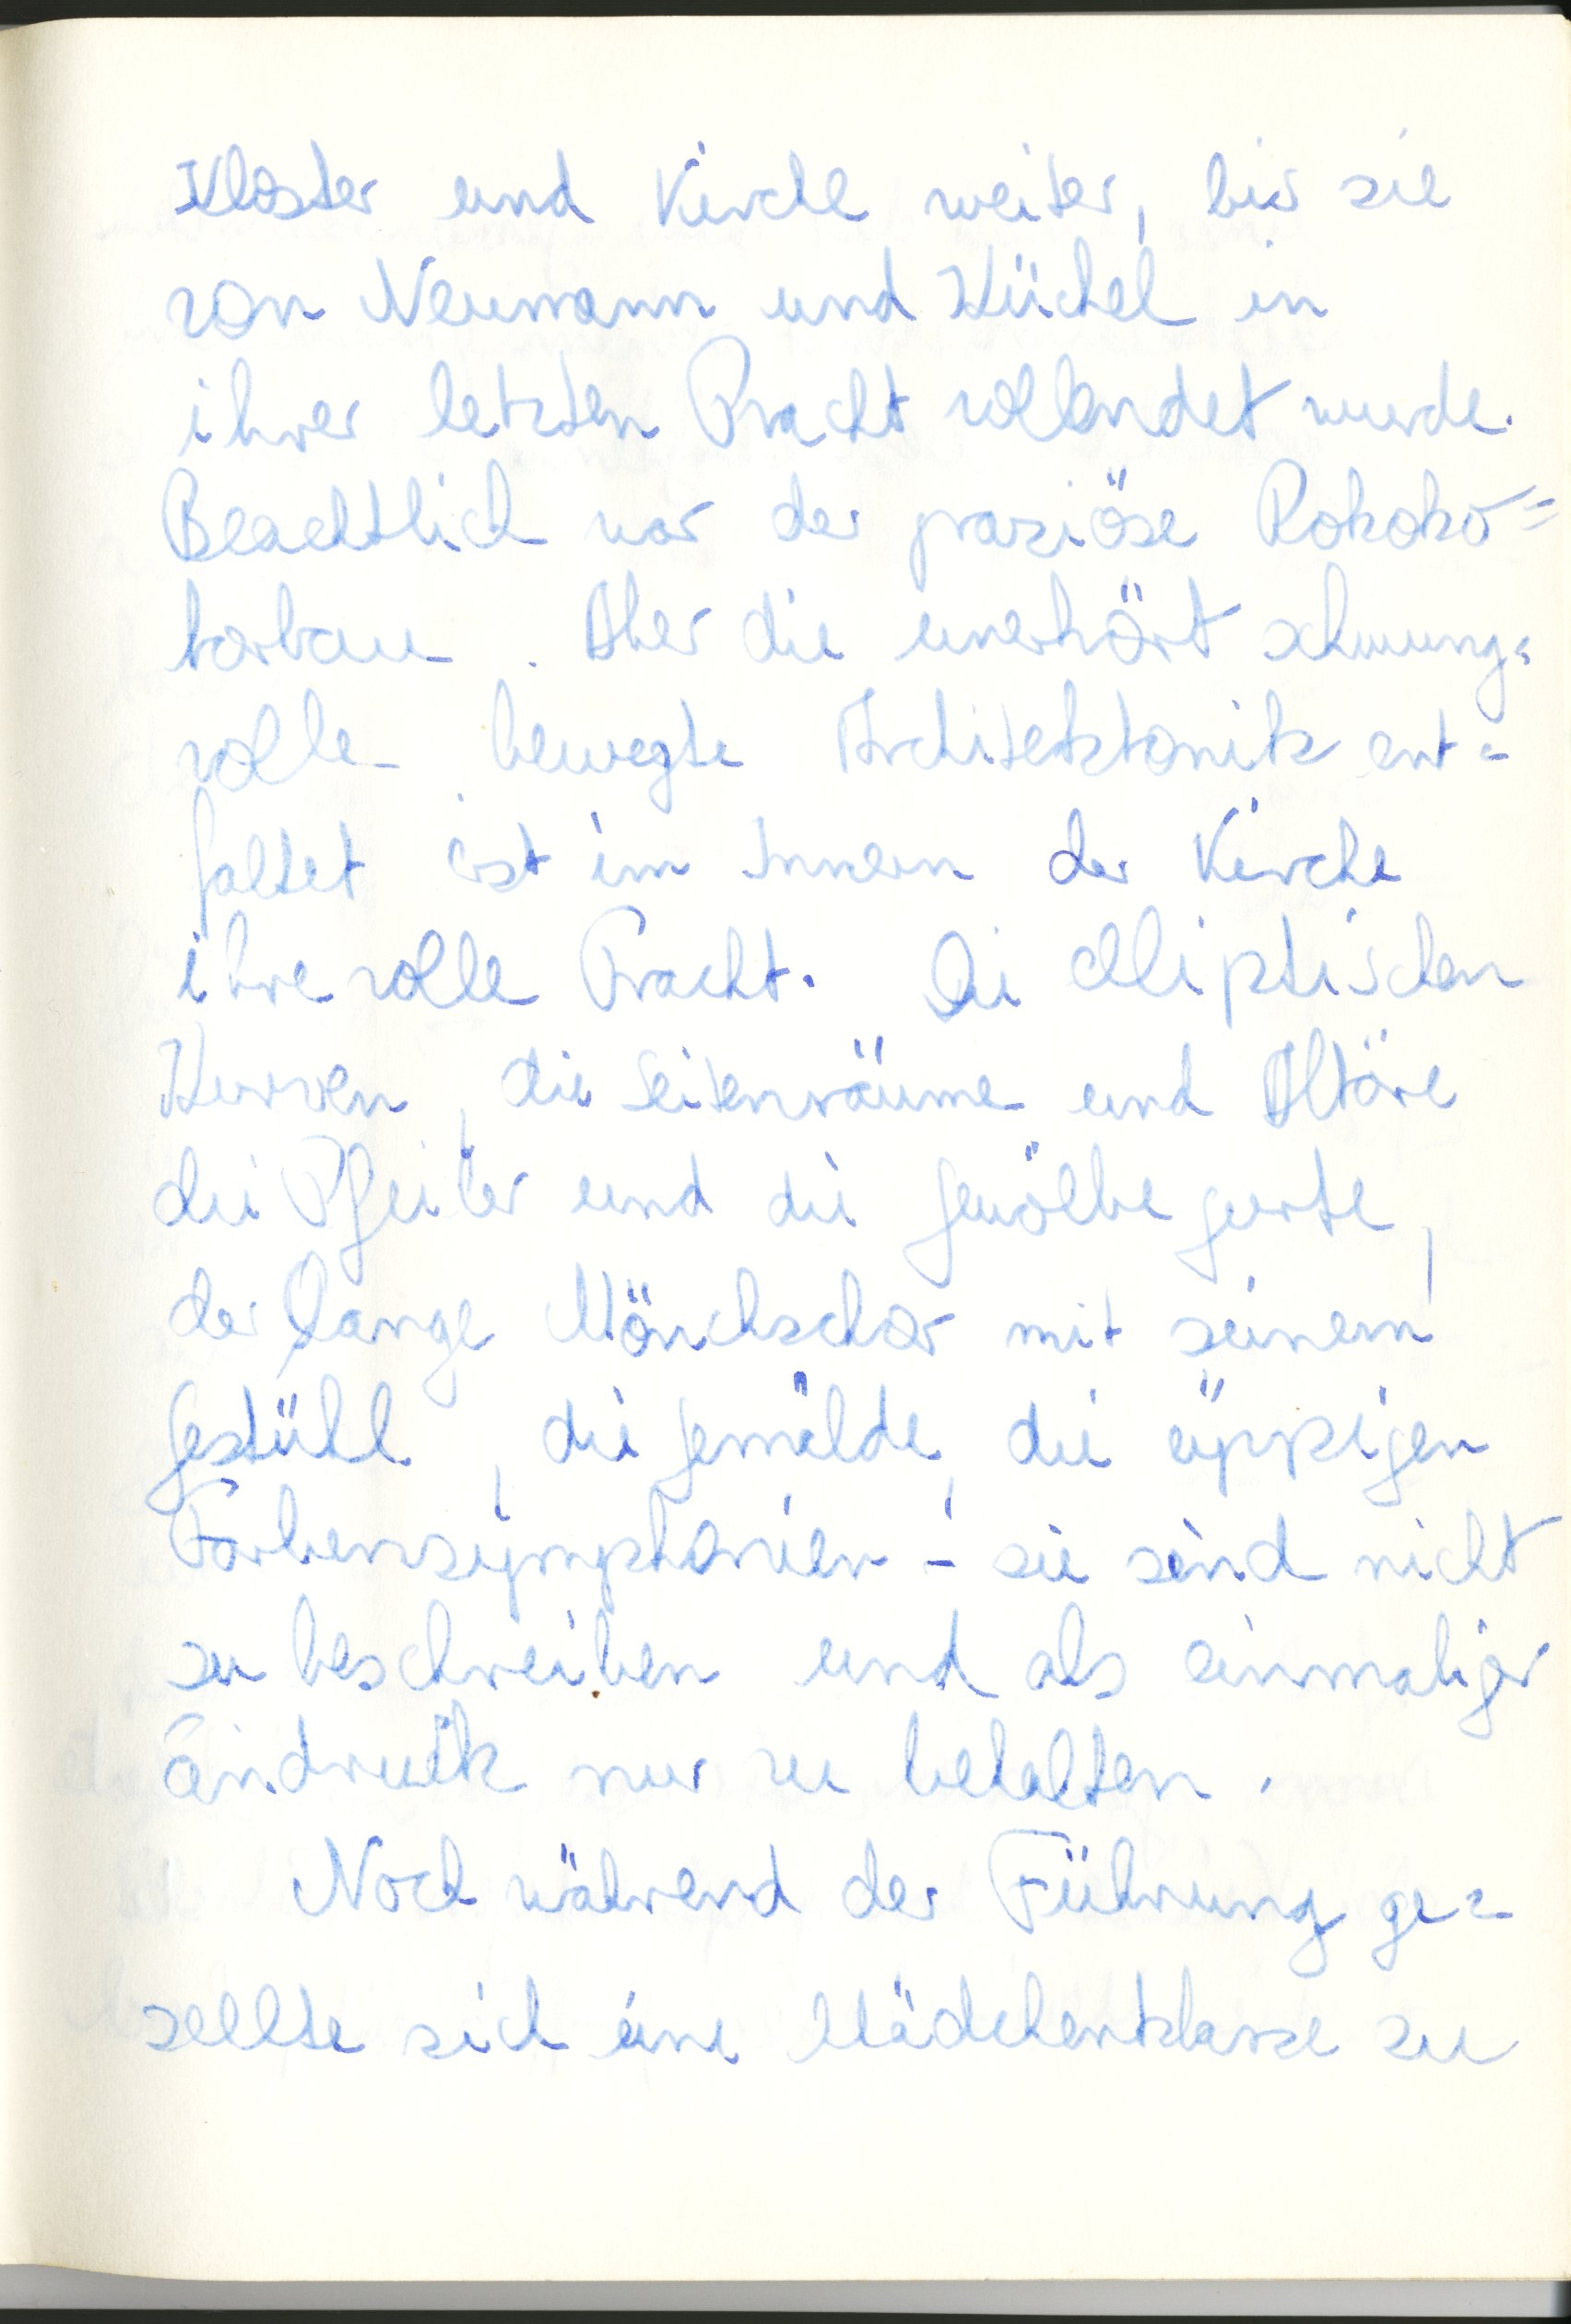 Kloster und Kirche weiter, bis sie
von Neumann und Küchel in
ihrer letzten Pracht vollendet wurde.
Beachtlich war der graziöse Rokoko=
torbau. Aber die unerhört schwung=
volle bewegte Architektonik ent=
faltet erst im Innern der Kirche
ihre volle Pracht. Die elliptischen
Kurven, die Seitenräume und Altäre
die Pfeiler und die Gewölbegurte,
der lange Mönchschor mit seinem
Gestühl, die Gemälde, die üppigen
Farbensymphonien – sie sind nicht
zu beschreiben und als einmaliger
Eindruck nur zu behalten.
Noch während der Führung ge=
sellte sich eine Mädchenklasse zu